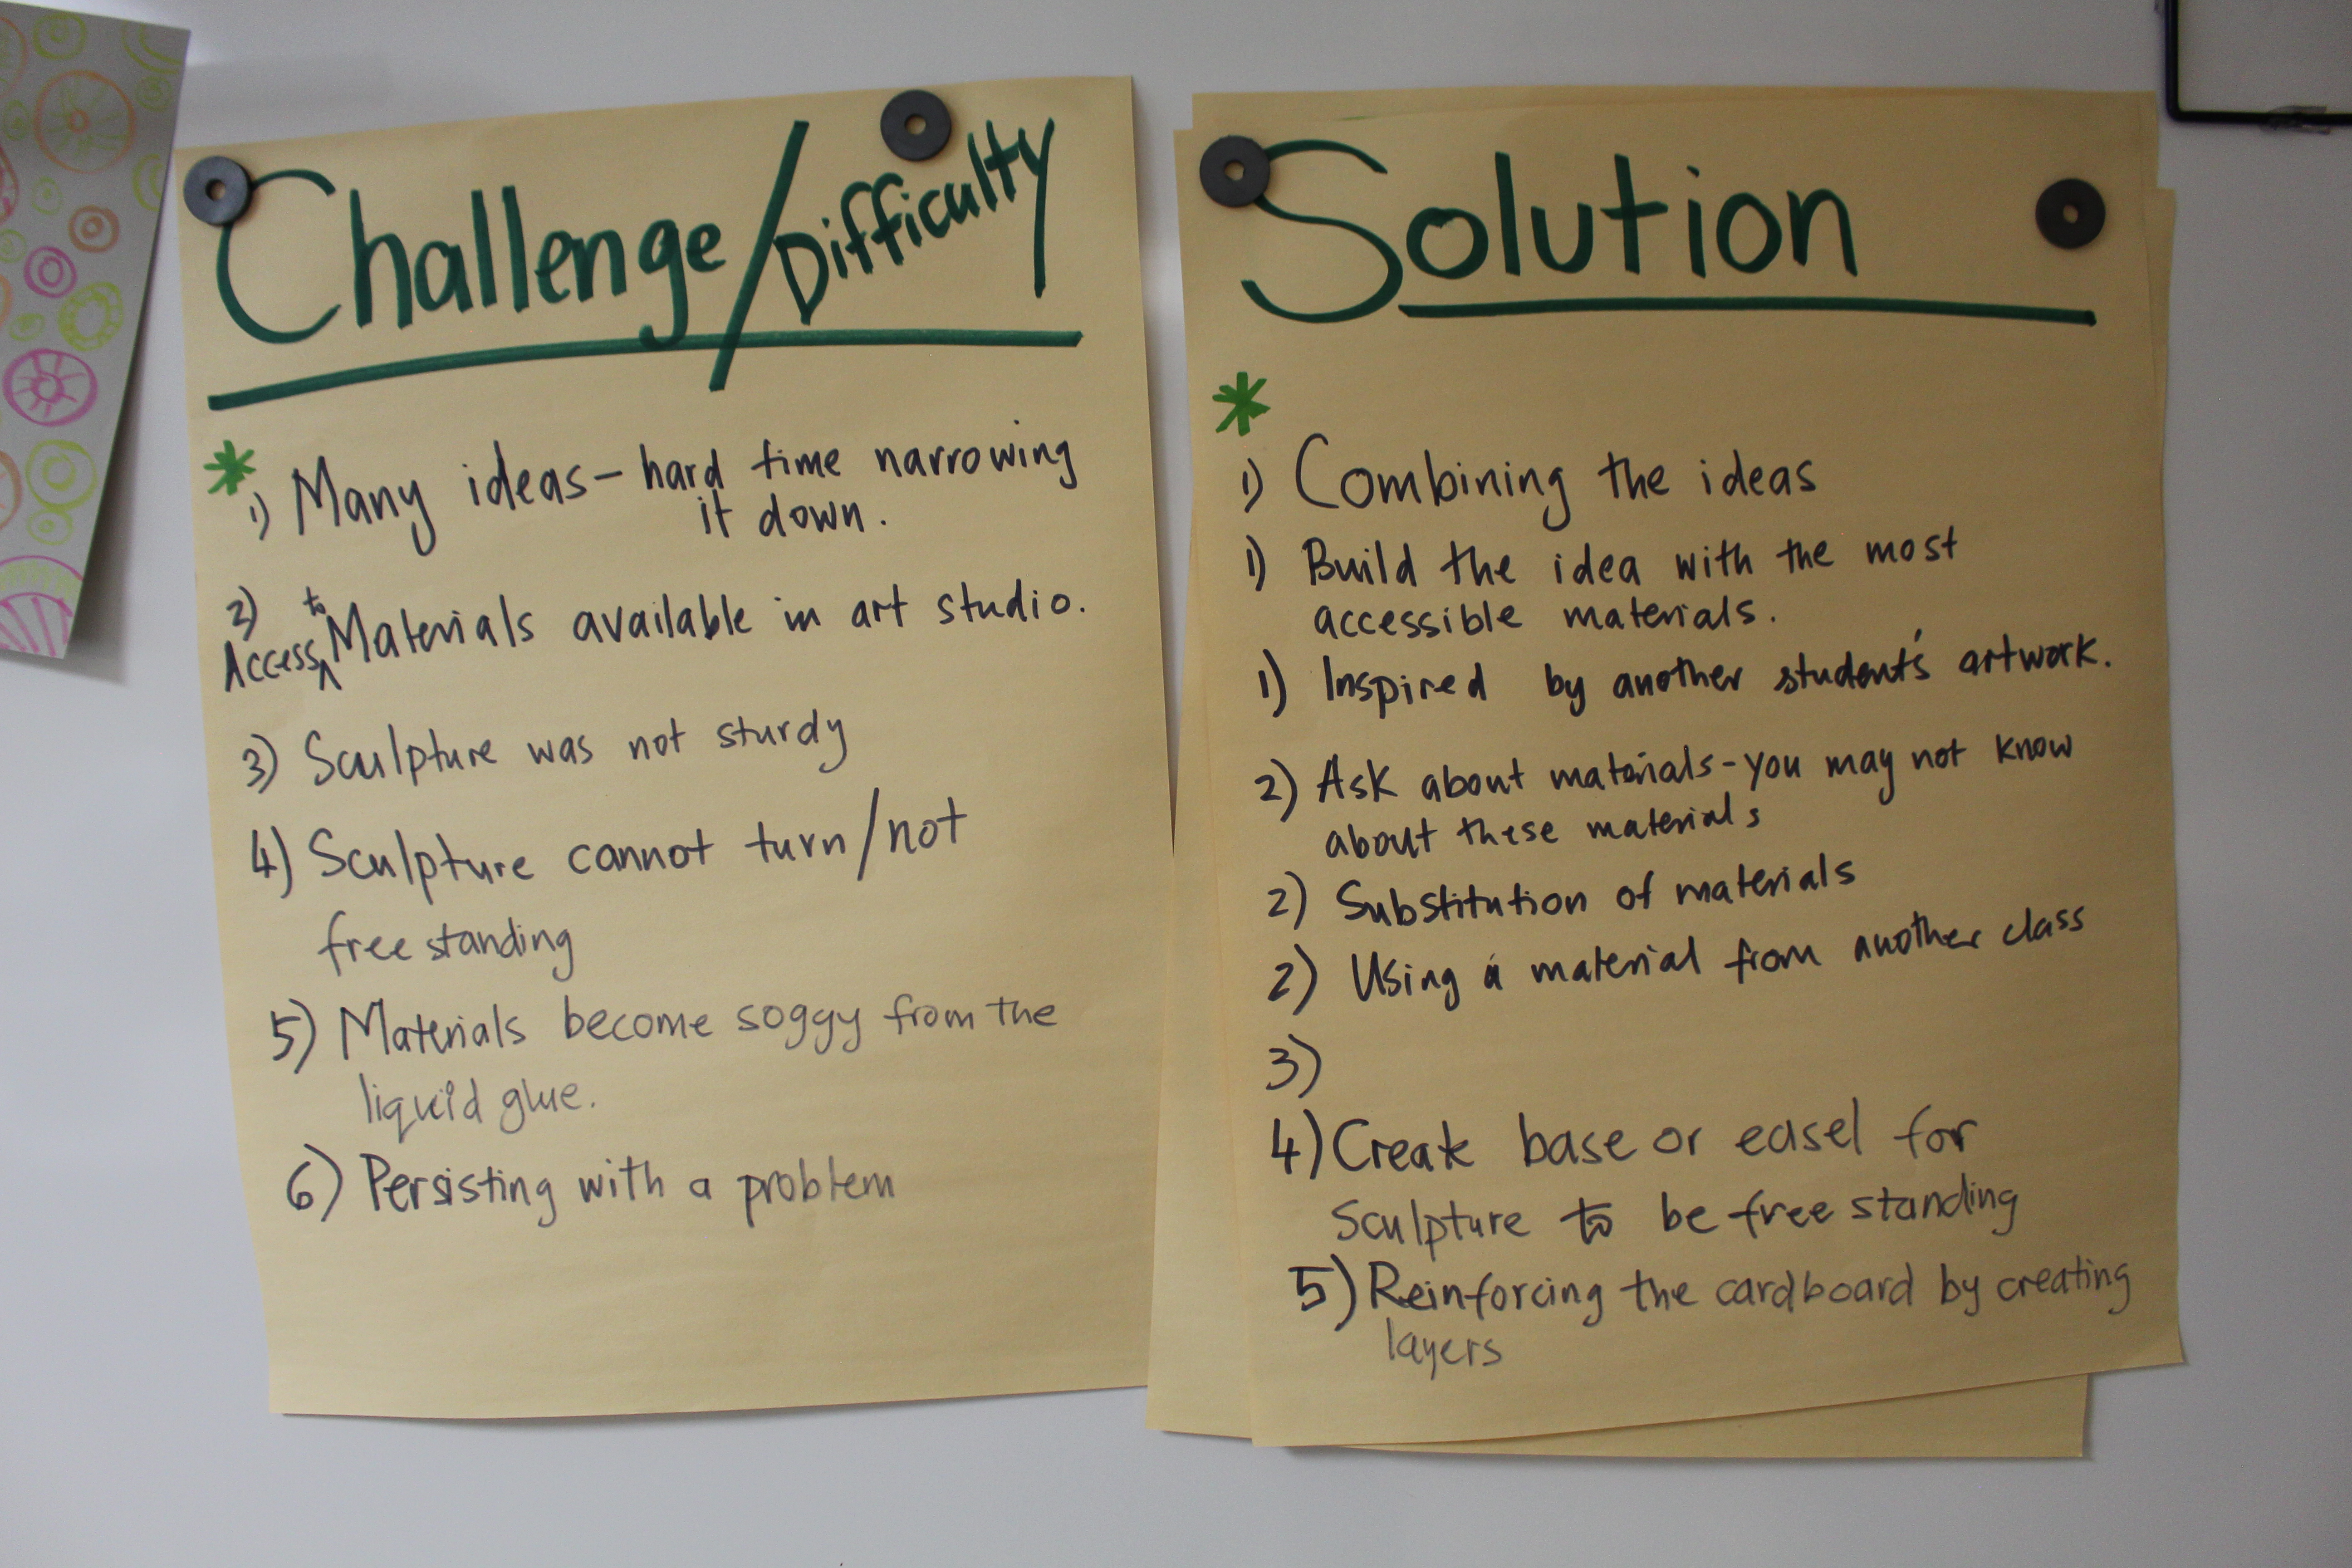 Challenge/Difficulty
* 1) Many ideas - hard time narrowing
it down.
2) Access to Materials available in art studio.
3) Sculpture was not sturdy
4) Sculpture cannot turn/not
free standing
5) Materials become soggy from the
liquid glue.
6) Persisting with a problem
Solution
*
1) Combining the ideas
1) Build the idea with the most
accessible materials.
1) Inspired by another student's artwork.
2) Ask about materials - you may not know
about these materials
2) Substitution of materials
2) Using a material from another class
3)
4) Create base or easel for
sculpture to be free standing
5) Reinforcing the cardboard by creating
layers